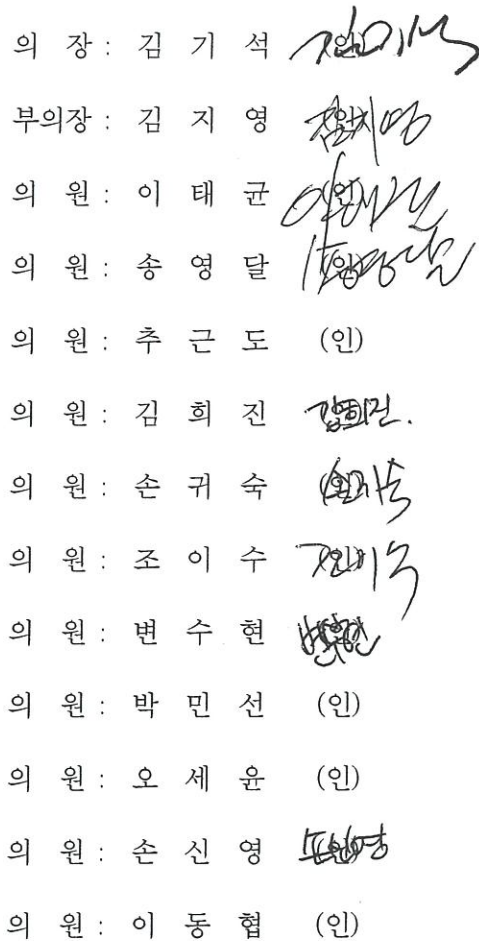 의 장 : 김 기 석 (인) 김기석
부의장 : 김 지 영 (인) 김지영
의 원 : 이 태 균 (인)
의 원 : 송 영 달 (인) 송영달
의 원 : 추 근 도 (인)
의 원 : 김 희 진 (인) 김희진.
의 원 : 손 귀 숙 (인) 손귀숙
의 원 : 조 이 수 (인) 조이수
의 원 : 변 수 현 (인) 변수현
의 원 : 박 민 선 (인)
의 원 : 오 세 윤 (인)
의 원 : 손 신 영 (인) 손신영
의 원 : 이 동 협 (인)